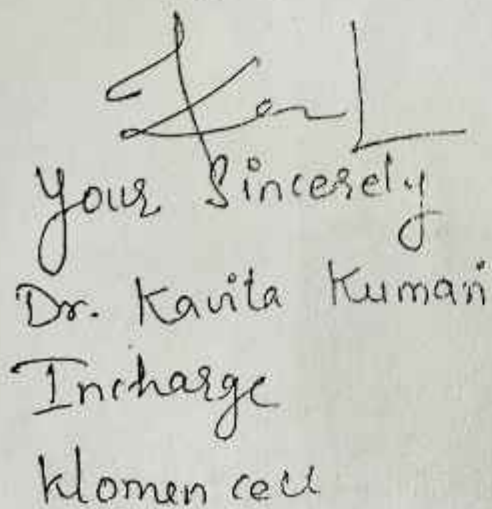 Your Sincerely
Dr. Kavita Kumari
Incharge
Women cell